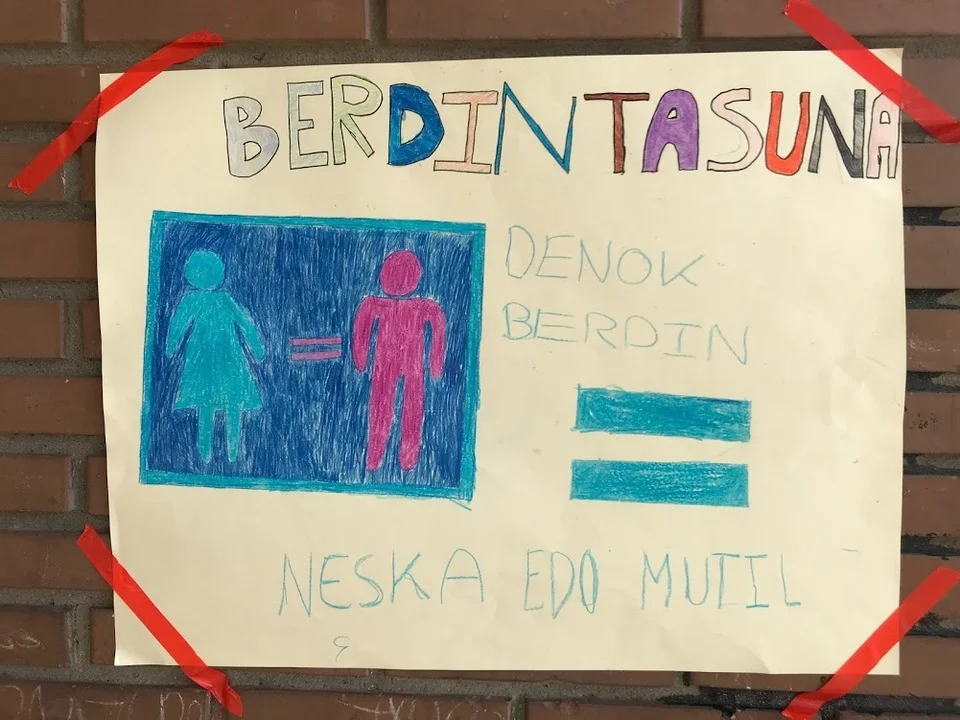 BERDINTASUNA
DENOK
BERDIN
=
=
NESKA EDO MUTIL